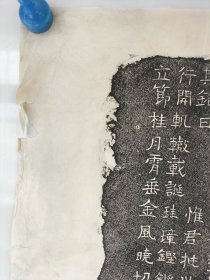 其銘曰 惟君
行開軌轍載誕珪璋鏗
立節桂月霄垂金風曉切